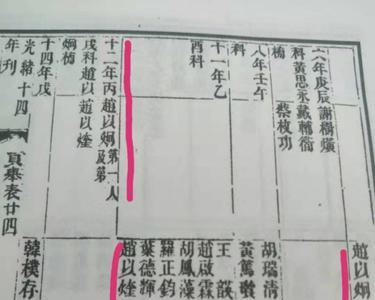 六年庚辰謝榾煐
科黄思永戴輔銜
楠 蔡枚功
八年壬午
科
十一年乙
酉科
十二年丙趙以炯第一人及第
戌科趙以趙以煃
炯楠
十四年戊
光緒十四
年刊
貢舉表廿四
趙以炯
胡瑞清
黃篤
王
趙啟霖
胡鳳藻
羅正鈞
葉德輝
趙以煃
韓樸存